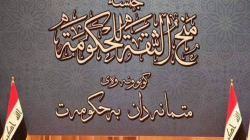 جلسة
منح الثقة للحكومة
كۆبوونەوەی
متمانەدان بە حكومەت